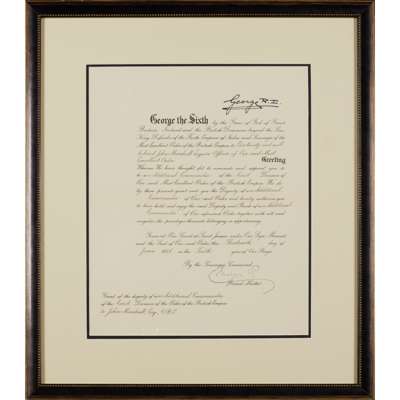 George R.I.
George the Sixth by the Grace of God of Great
Britain, Ireland and the British Dominions beyond the Seas
King, Defender of the Faith, Emperor of India and Sovereign of the
Most Excellent Order of the British Empire to Our trusty and well
beloved John Marshall Esquire Officer of Our said Most
Excellent Order Greeting
Whereas We have thought fit to nominate and appoint you to
be an Additional Commander of the Civil Division of
Our said Most Excellent Order of the British Empire We do
by these presents grant unto you the Dignity of an Additional
Commander of Our said Order and hereby authorise you
to have hold and enjoy the said Dignity and Rank of an Additional
Commander of Our aforesaid Order together with all and
singular the privileges thereunto belonging or appertaining.
Given at Our Court at Saint James's under Our Sign Manual
and the Seal of Our said Order this day of
June in the year of Our Reign.
By the Sovereign's Command.
Grand Master.
Grant of the dignity of an Additional Commander
of the Civil Division of the Order of the British Empire
to John Marshall, Esq., O.B.E.